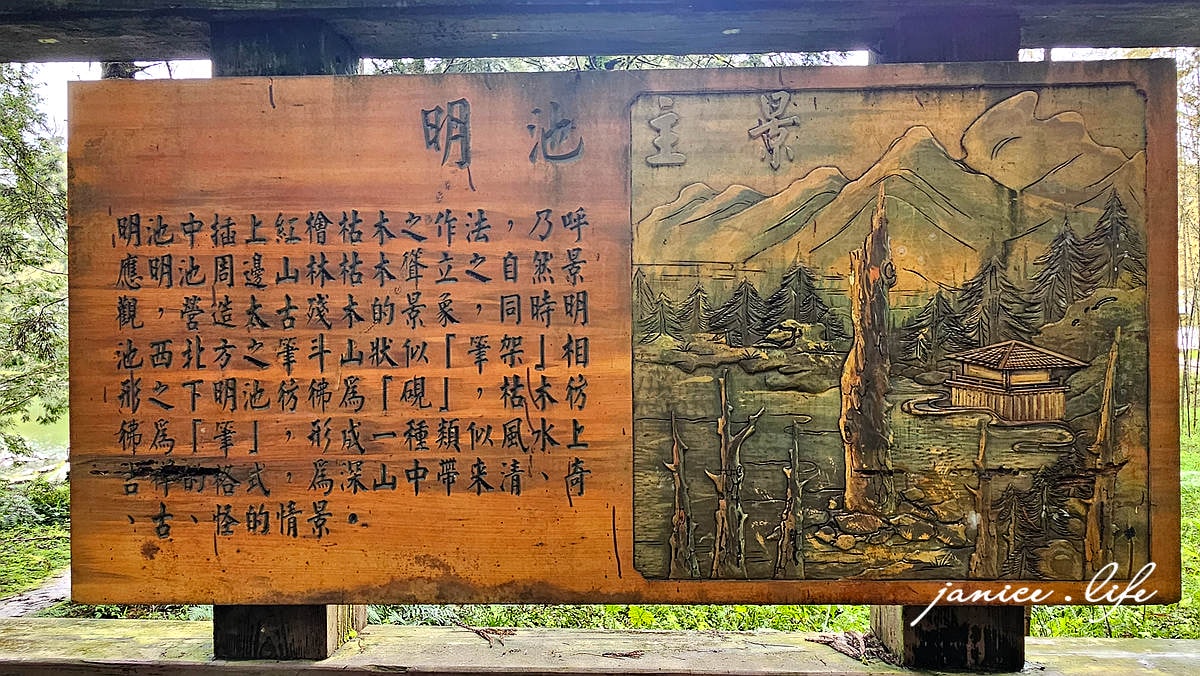 明池主景
明池中插上紅檜枯木之作法，乃呼
應明池周邊山林枯木聳立之自然景
觀，營造太古殘木的景象，同時明
池西北方之筆斗山狀似「筆架」相
形之下明池彷彿為「硯」，枯木彷
彿為「筆」，形成一種類似風水上
吉祥的格式，為深山中帶来清、奇
、古、怪的情景。
janice.life